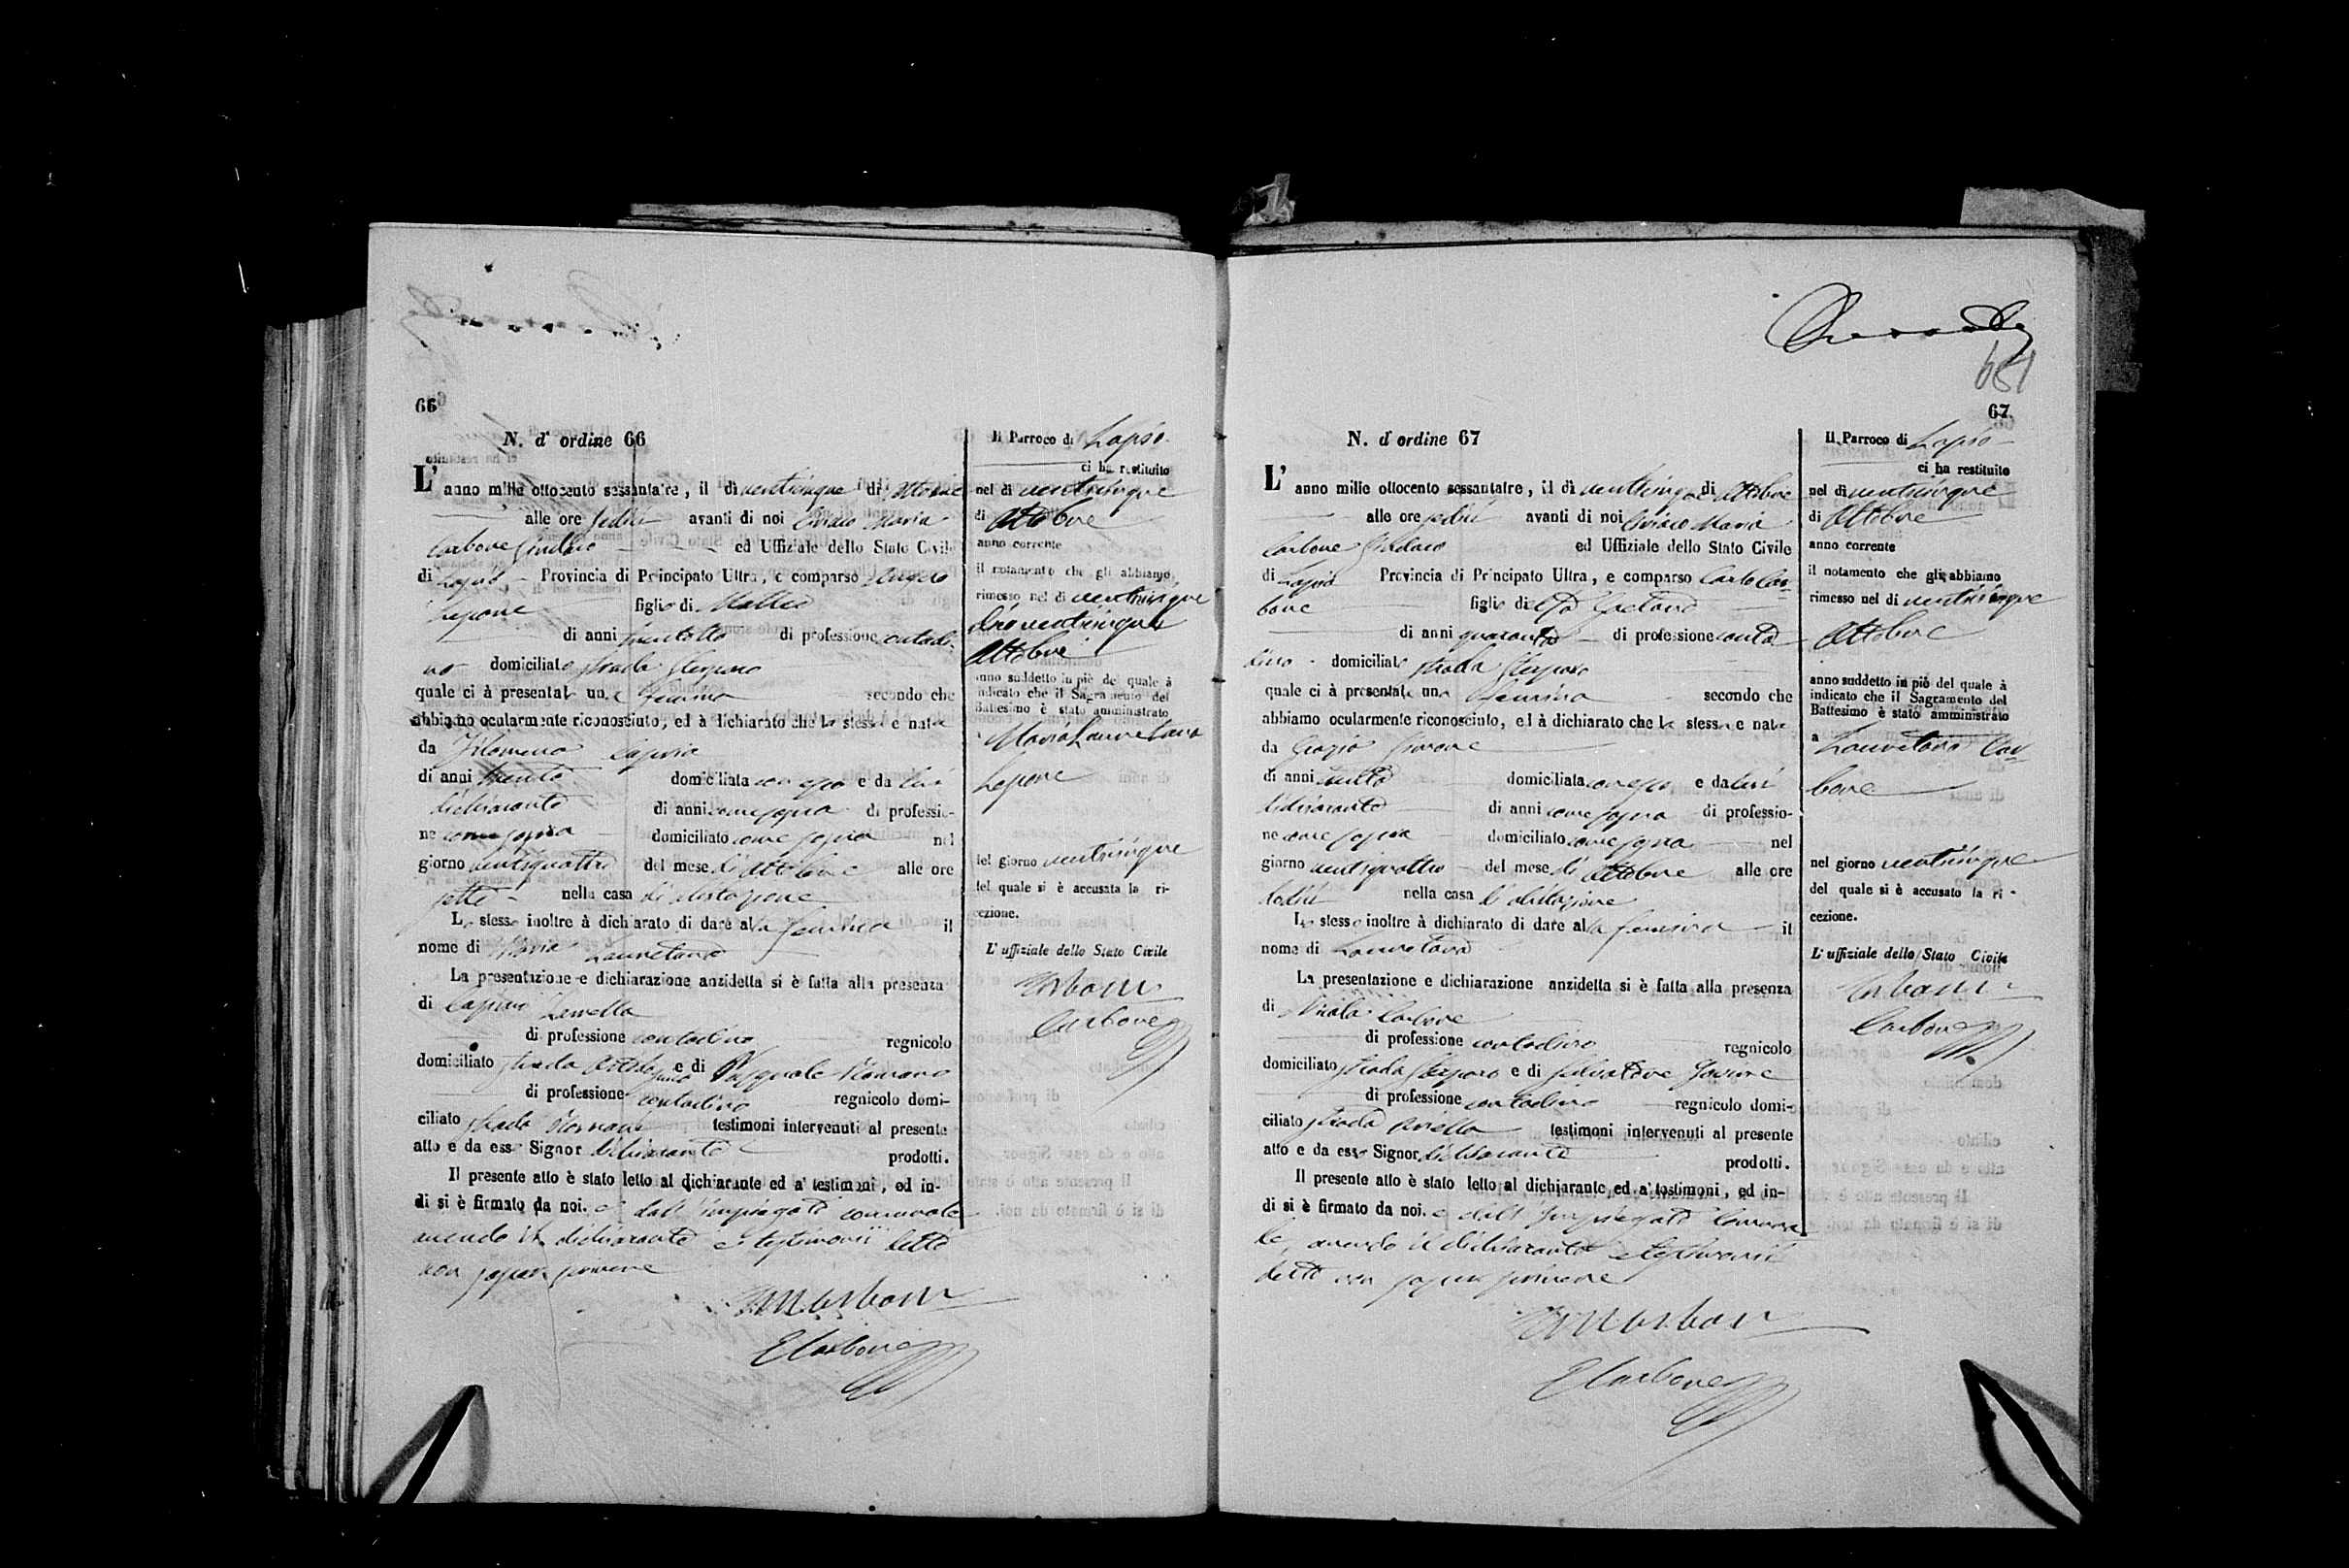 66
N. d' ordine 66
L' anno mille ottocento sessantatre, il di venticinque di Ottobre
alle ore sedici avanti di noi Ciriaco Maria
Carbone Sindaco ed Uffiziale dello Stato Civile
di Lapio Provincia di Principato Ultra, è comparso Angelo
Lepore figlio di Matteo
di anni trentotto di professione contadi-
no domiciliato strada
quale ci à presentato una femina secondo che
abbiamo ocularmente riconosciuto, ed à dichiarato che la stessa e nata
da Filomena Caposia
di anni trenta domiciliata con esso e da lui
dichiarante di anni come sopra di professio-
ne come sopra domiciliato come sopra nel
giorno ventiquattro del mese di Ottobre alle ore
sette nella casa di abitazione
Lo stesso inoltre à dichiarato di dare alla femina il
nome di Maria Lauretana
La presentazione e dichiarazione anzidetta si è fatta alla presenza
di
di professione contadino regnicolo
domiciliato strada e di Pasquale Romano
di professione contadino regnicolo domi-
ciliato strada testimoni intervenuti al presente
atto e da esso Signor dichiarante prodotti.
Il presente atto è stato letto al dichiarante ed a' testimoni, ed in-
di si è firmato da noi. e dall' impiegato comunale
avendo il dichiarante e testimonii detto
non saper scrivere
Carbone
Il Parroco di Lapio
ci ha restituito
nel di venticinque
di Ottobre
anno corrente
il notamento che gli abbiamo
rimesso nel di venticinque
venticinque
Ottobre
anno suddetto in piè del quale à
indicato che il Sagramento del
Battesimo è stato amministrato
a Maria Lauretana
Lepore
nel giorno venticinque
del quale si è accusata la ri-
cezione.
L' uffiziale dello Stato Civile
Carbone
67
N. d' ordine 67
L' anno mille ottocento sessantatre, il di venticinque di Ottobre
alle ore sedici avanti di noi Ciriaco Maria
Carbone Sindaco ed Uffiziale dello Stato Civile
di Lapio Provincia di Principato Ultra, e comparso Carlo Car-
bone figlio di Gaetano
di anni quaranta di professione conta
dino domiciliato strada
quale ci à presentata una femina secondo che
abbiamo ocularmente riconosciuto, ed à dichiarato che la stessa e nata
da Grazia
di anni trenta domiciliata con esso e da lui
dichiarante di anni come sopra di professio-
ne come sopra domiciliato come sopra nel
giorno ventiquattro del mese di Ottobre alle ore
dodici nella casa di abitazione
Lo stesso inoltre à dichiarato di dare alla femina il
nome di Lauretana
La presentazione e dichiarazione anzidetta si è fatta alla presenza
di Nicola Carbone
di professione contadino regnicolo
domiciliato strada e di Salvatore
di professione contadino regnicolo domi-
ciliato strada testimoni intervenuti al presente
atto e da esso Signor dichiarante prodotti.
Il presente atto è stato letto al dichiarante ed a' testimoni, ed in-
di si è firmato da noi. e dall' impiegato comuna
le, avendo il dichiarante e testimonii
detto non saper scrivere
Carbone
Il Parroco di Lapio
ci ha restituito
nel di venticinque
di Ottobre
anno corrente
il notamento che gli abbiamo
rimesso nel di venticinque
Ottobre
anno suddetto in piè del quale à
indicato che il Sagramento del
Battesimo è stato amministrato
a Lauretana Car-
bone
nel giorno venticinque
del quale si è accusato la ri-
cezione.
L' uffiziale dello Stato Civile
Carbone